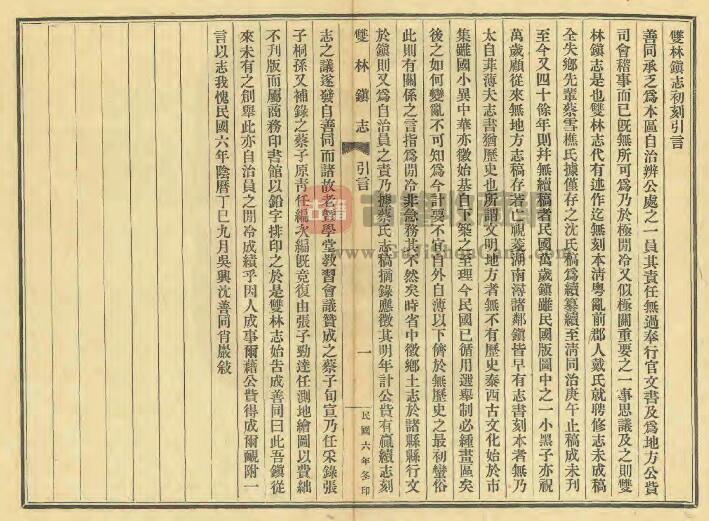 雙林鎮志初刻引言
善同承乏爲本區自治辦公處之一員其責任無過奉行官文書及爲地方公貲
司會稽事而已旣無所可爲乃於極閒冷又似極關重要之一事思議及之則雙
林鎮志是也雙林志代有述作迄無刻本清粵亂前郡人戴氏就聘修志未成稿
全失鄉先輩蔡雪樵氏據僅存之沈氏稿爲續纂續至清同治庚午止稿成未刊
至今又四十餘年則幷無續稿者民國萬歲鎮雖民國版圖中之一小黑子亦祝
萬歲顧從來無地方志稿存若亡視菱湖南潯諸鄰鎮皆早有志書刻本者無乃
太自菲薄夫志書猶歷史也所謂文明地方者無不有歷史泰西古文化始於市
集雖國小異中華亦徵始基自下築之至理今民國已循用選舉制必種畫區矣
後之如何變亂不可知爲今計要不宜自外自薄以下儕於無歷史之最初蠻俗
此則有關係之言指爲閒冷非急務其不然矣時省中徵鄉土志於諸縣縣行文
於鎮則又爲自治員之責乃據蔡氏志稿摘錄應徵其明年計公貲有贏續志刻
雙林鎮志
引言
一
民國六年冬印
志之議遂發自善同而諸故老暨學堂教習會議贊成之蔡子旬宣乃任采錄張
子桐孫又補錄之蔡子原青任編次編旣竟復由張子勁達任測地繪圖以費絀
不刋版而屬商務印書館以鉛字排印之於是雙林志始吿成善同曰此吾鎮從
來未有之創舉此亦自治員之閒冷成績乎因人成事爾藉公貲得成爾靦附一
言以志我愧民國六年陰曆丁巳九月吳興沈善同肖嚴敍
古籍